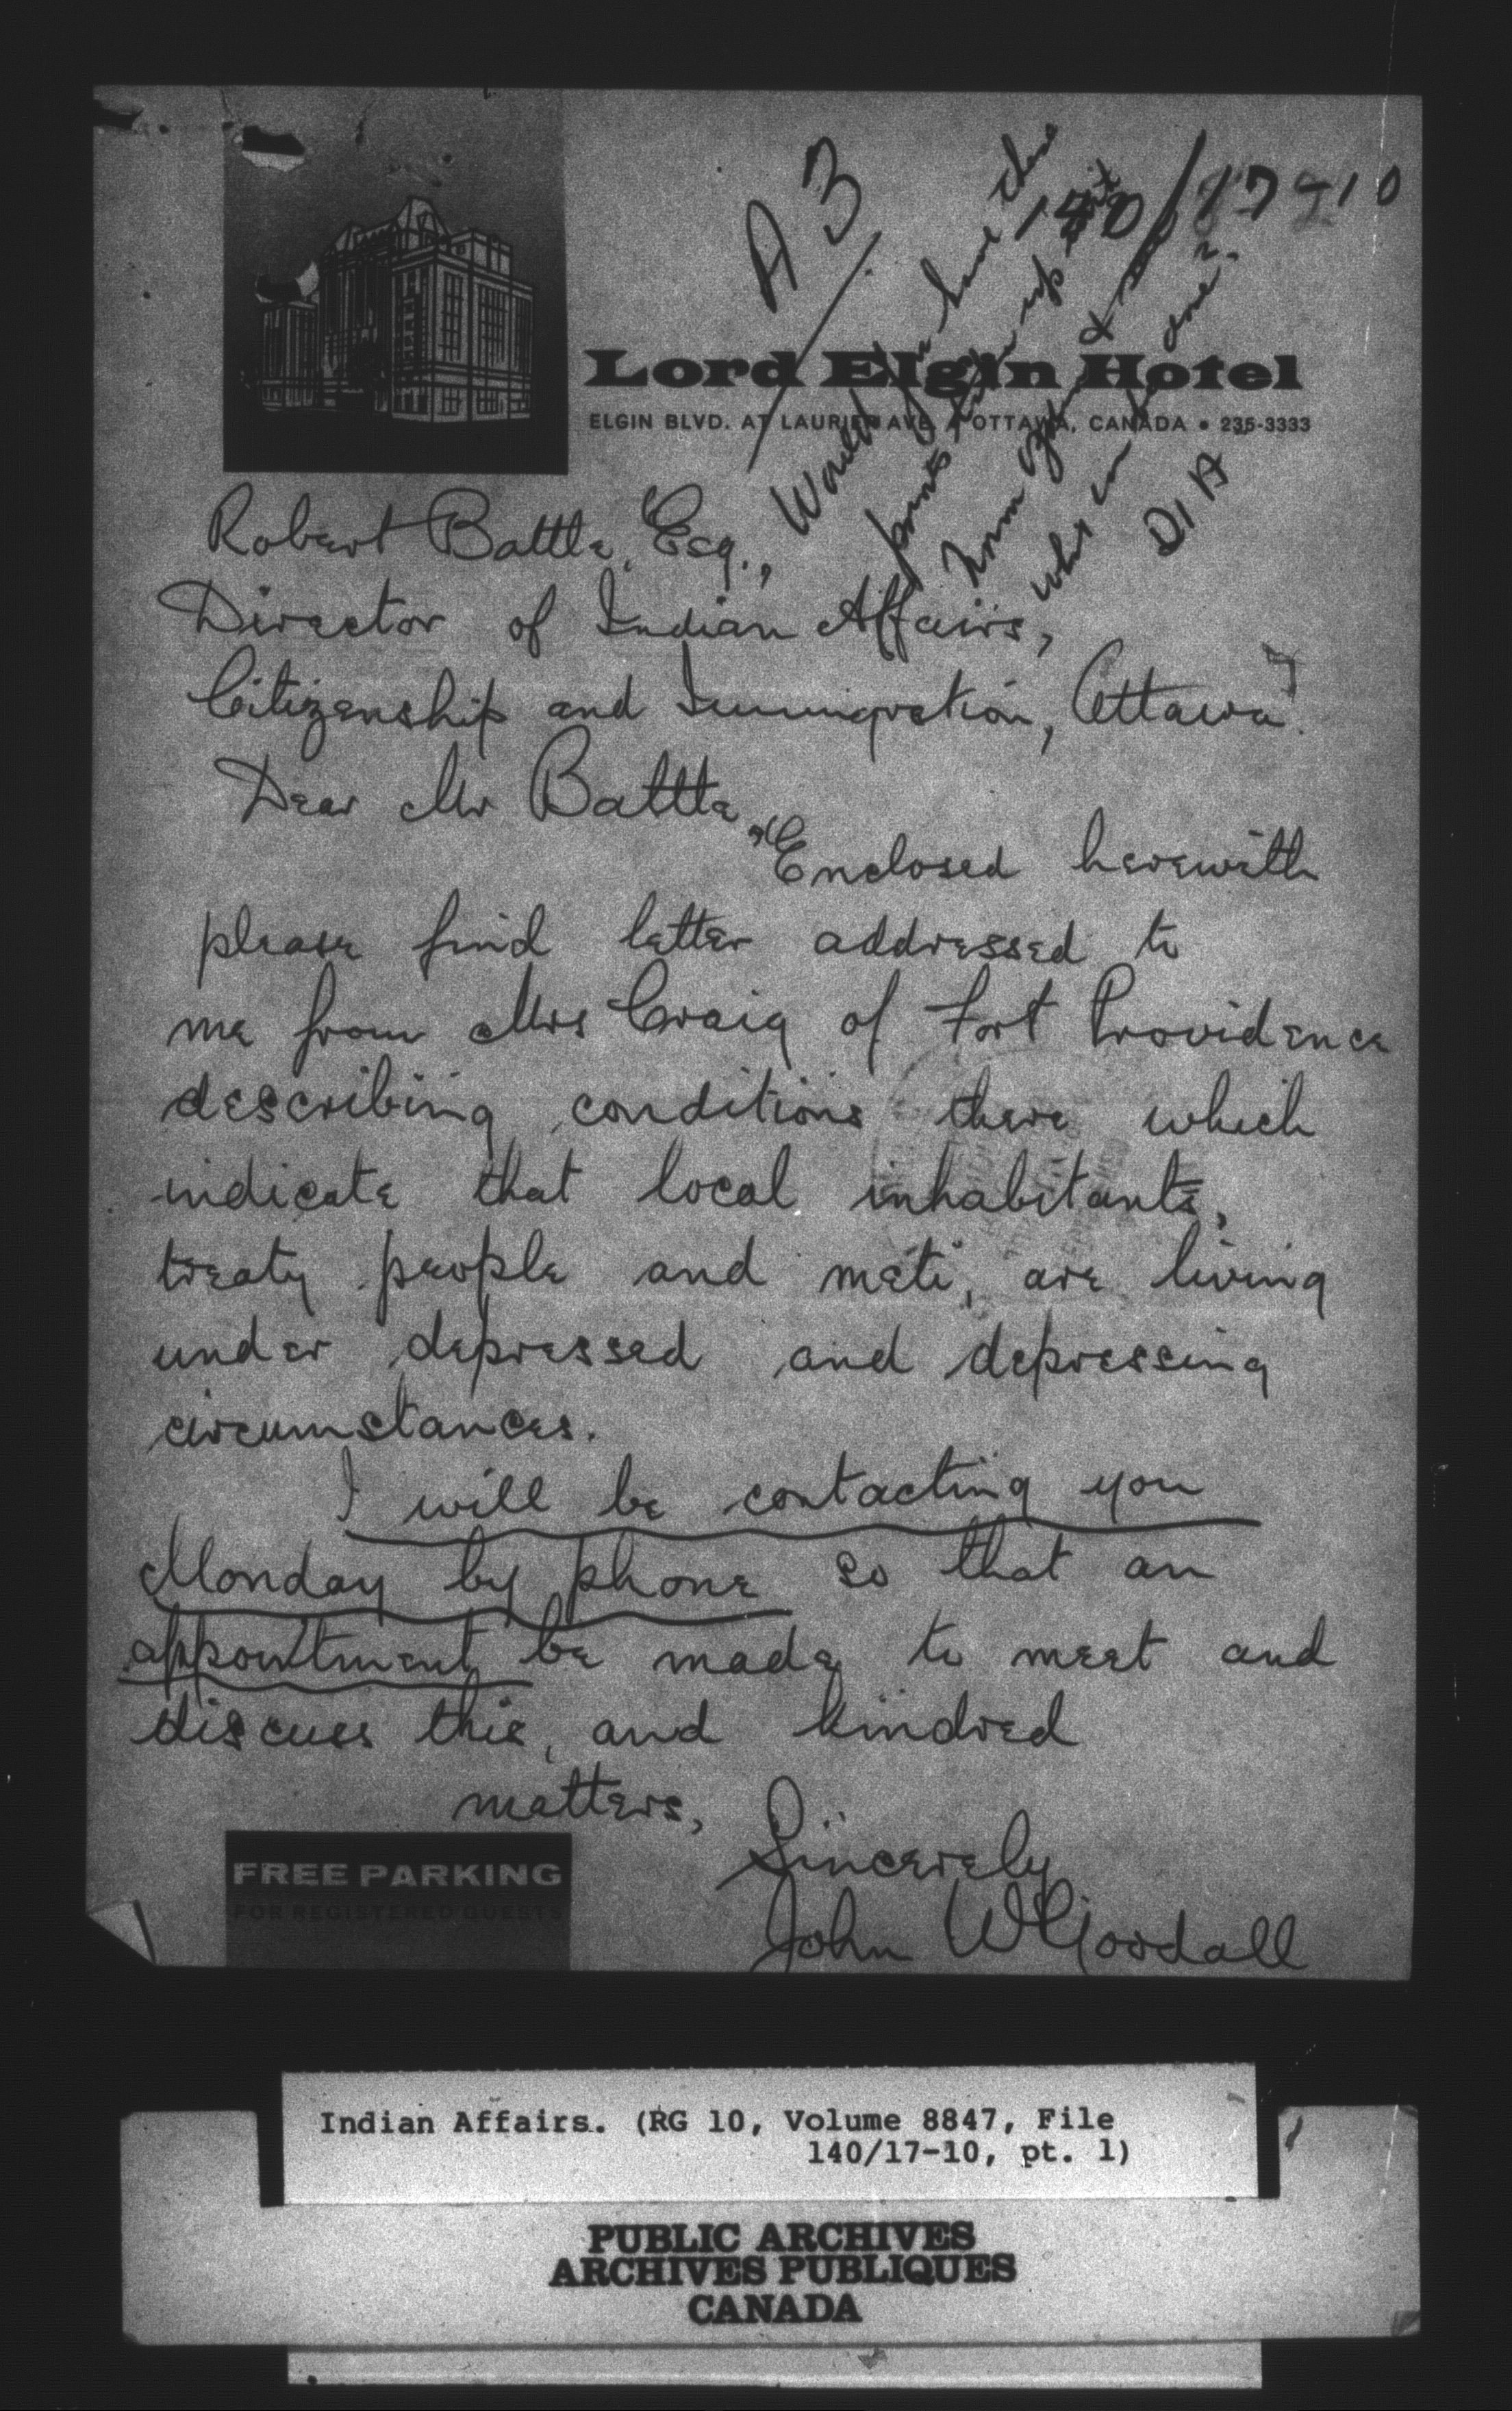 A 3
140/17-10
Would you have these
points taken up with
from
who in one?
DIA
Lord Elgin Hotel
ELGIN BLVD. AT LAURIER AVE. • OTTAWA, CANADA • 235-3333
Robert Battle, Esq.,
Director of Indian Affairs,
Citizenship and Immigration, Ottawa.
Dear Mr Battle,
Enclosed herewith
please find letter addressed to
me from Mrs Craig of Fort Providence
describing conditions there which
indicate that local inhabitants,
treaty people and méti, are living
under depressed and depressing
circumstances.
I will be contacting you
Monday by phone so that an
appointment be made to meet and
discuss this, and kindred
matters,
Sincerely
John W Goodall
FREE PARKING
FOR REGISTERED GUESTS
Indian Affairs. (RG 10, Volume 8847, File
140/17-10, pt. 1)
PUBLIC ARCHIVES
ARCHIVES PUBLIQUES
CANADA